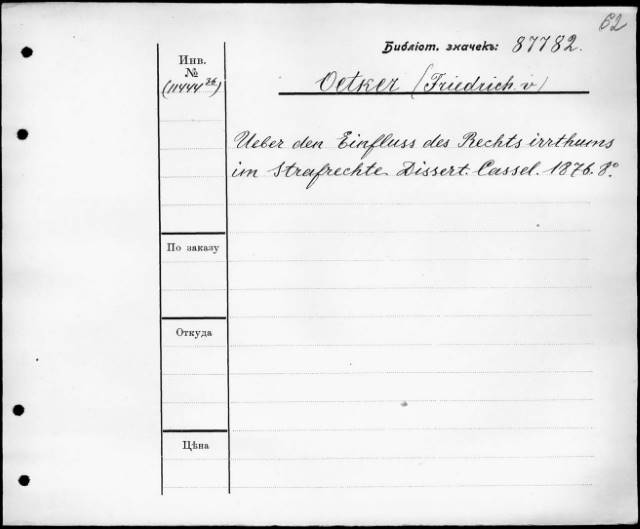 62
Библіот. значекъ: 87782.
Инв.
№
(11444 36)
Oetker (Friedrich v)
Ueber den Einfluss des Rechts irrthums
im Strafrechte. Dissert. Cassel. 1876. 8°.
По заказу
Откуда
Цѣна